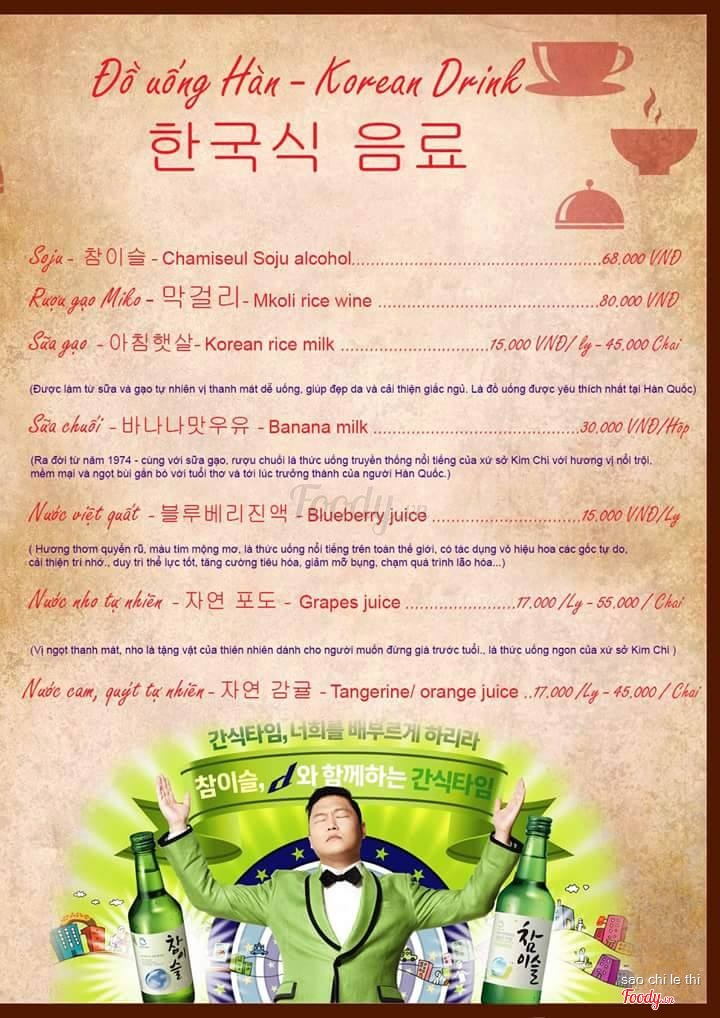 Đồ uống Hàn - Korean Drink
한국식 음료
Soju - 참이슬 - Chamiseul Soju alcohol..........................................68.000 VNĐ
Rượu gạo Miko - 막걸리- Mkoli rice wine .....................................80.000 VNĐ
Sữa gạo - 아침햇살- Korean rice milk .........................15.000 VNĐ/ ly - 45.000 Chai
(Được làm từ sữa và gạo tự nhiên vị thanh mát dễ uống, giúp đẹp da và cải thiện giấc ngủ. Là đồ uống được yêu thích nhất tại Hàn Quốc)
Sữa chuối - 바나나맛우유 - Banana milk ...................................30,000 VNĐ/Hộp
(Ra đời từ năm 1974 - cùng với sữa gạo, rượu chuối là thức uống truyền thống nổi tiếng của xứ sở Kim Chi với hương vị nổi trội,
mềm mại và ngọt bùi gắn bó với tuổi thơ và tới lúc trưởng thành của người Hàn Quốc.)
Foody.vn
Nước việt quất - 블루베리진액 - Blueberry juice .........................15.000 VNĐ/Ly
( Hương thơm quyến rũ, màu tím mộng mơ, là thức uống nổi tiếng trên toàn thế giới, có tác dụng vô hiệu hoa các gốc tự do,
cải thiện trí nhớ., duy trì thể lực tốt, tăng cường tiêu hóa, giảm mỡ bụng, chạm quá trình lão hóa...)
Nước nho tự nhiên - 자연 포도 - Grapes juice ...................17.000 /Ly - 55.000 / Chai
(Vị ngọt thanh mát, nho là tặng vật của thiên nhiên dành cho người muốn đừng già trước tuổi., là thức uống ngon của xứ sở Kim Chi )
Nước cam, quýt tự nhiên - 자연 감귤 - Tangerine/ orange juice ..17.000 /Ly - 45.000 / Chai
간식타임, 너희를 배부르게 하리라
참이슬, d와 함께하는 간식타임
참이슬
참이슬
sao chi le thi
Foody.vn